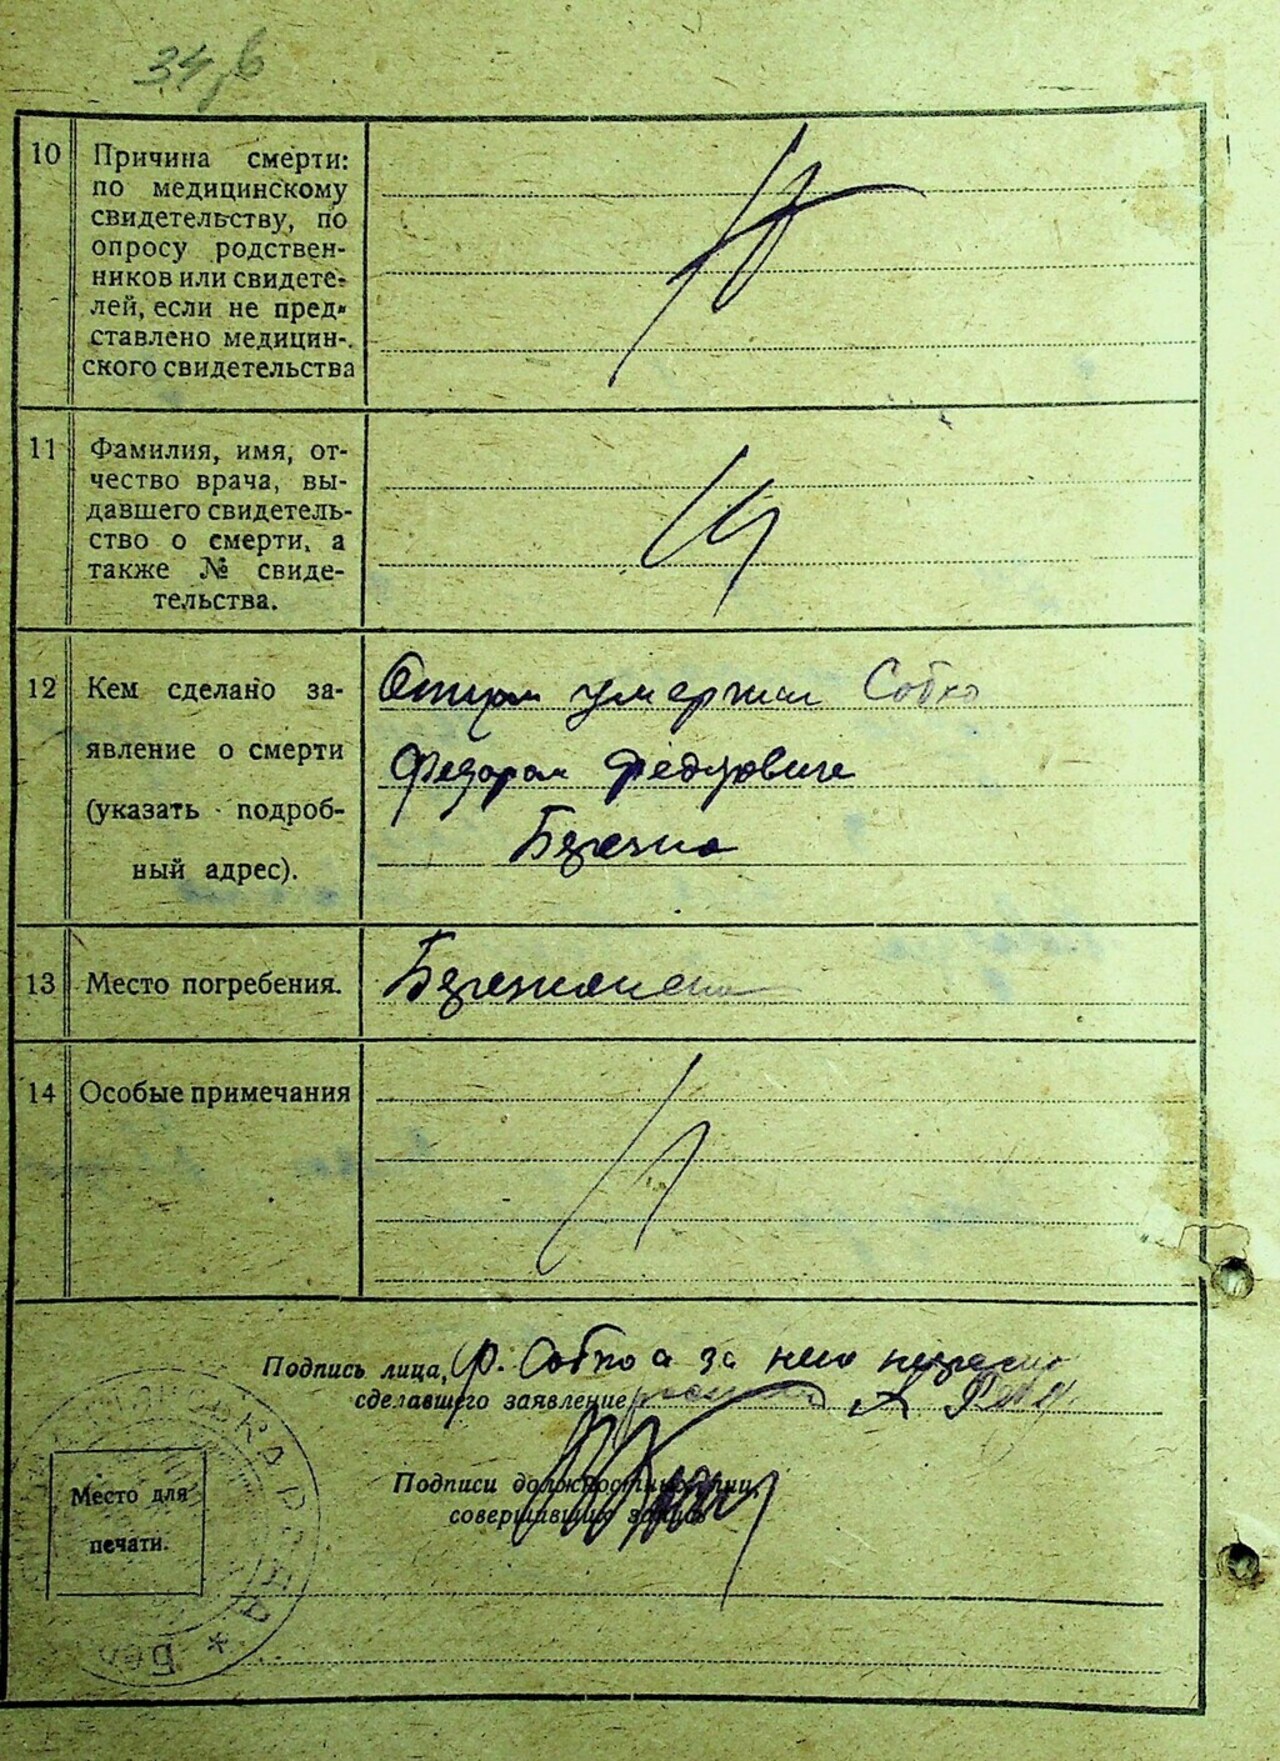 10 Причина смерти:
по медицинскому
свидетельству, по
опросу родствен-
ников или свидете-
лей, если не пред-
ставлено медицин-
ского свидетельства
11 Фамилия, имя, от-
чество врача, вы-
давшего свидетель-
ство о смерти, а
также № свиде-
тельства.
12 Кем сделано за-
явление о смерти
(указать подроб-
ный адрес).
Отцом умершей Собко
Федором Федоровиче
13 Место погребения.
14 Особые примечания
Подпись лица, Ф. Собко а за него
сделавшего заявление
Подписи должностных лиц,
совершивших запись
Место для
печати.